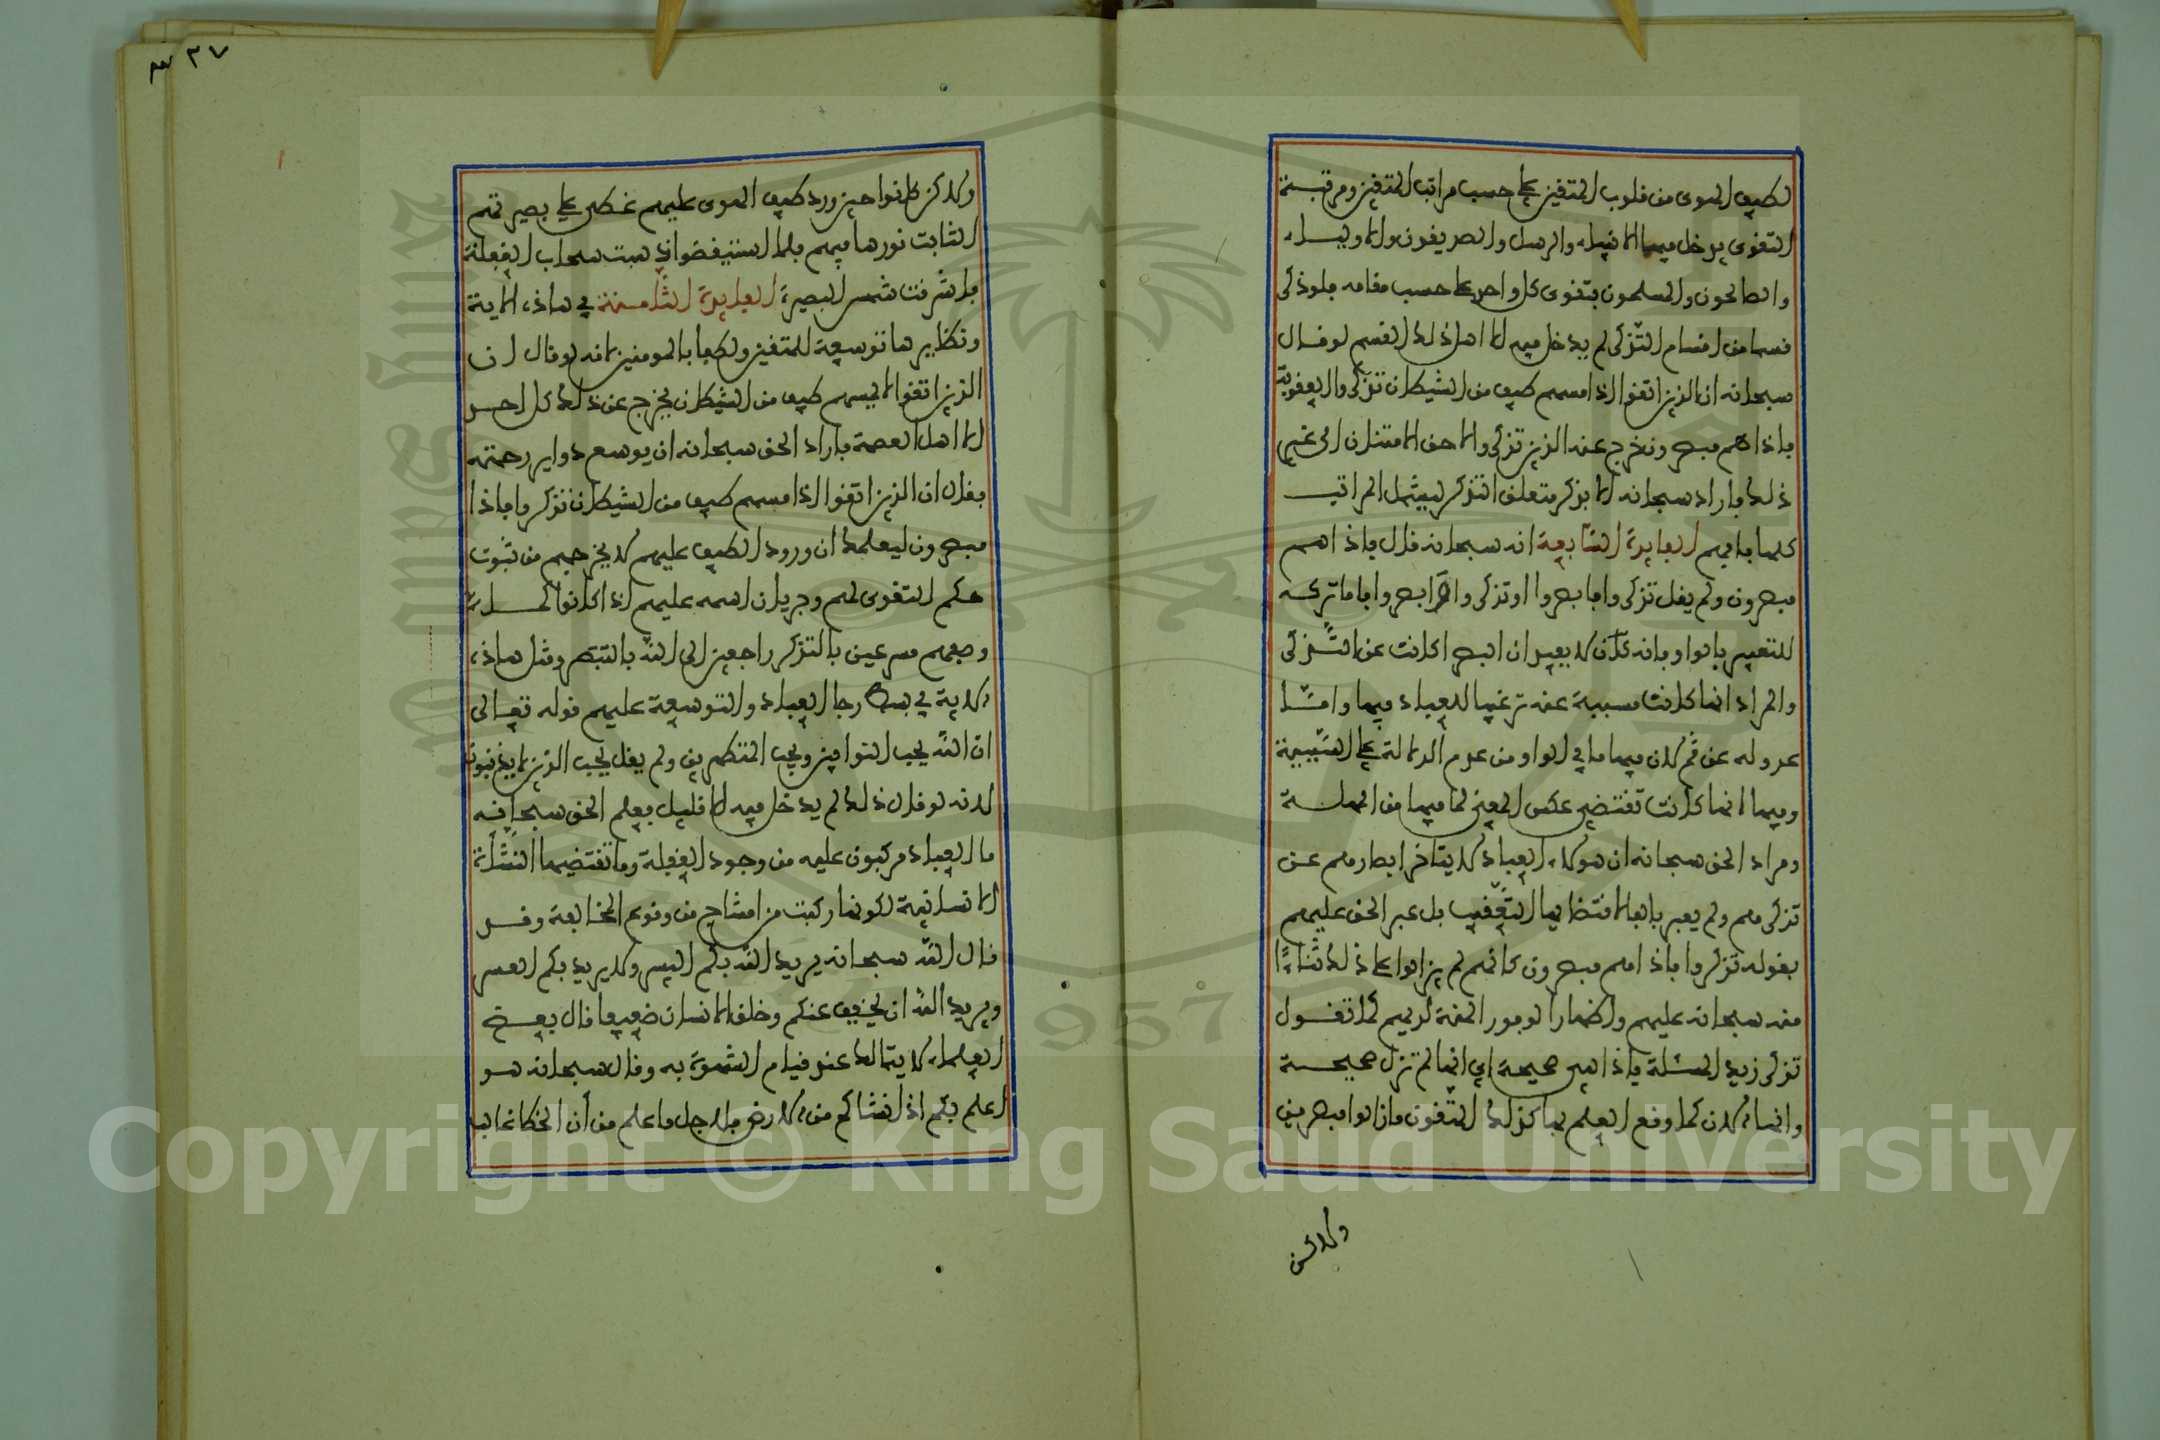 لطيف الهوى من قلوب المتقين على حسب مراتب المتقين ومرتبة
التقوى يدخل فيها الانبياء والرسل والصديقون والاولياء
والصالحون والمسلمون فتقوى كل واحد على حسب مقامه فلو ذكر
قسما من اقسام التذكر لم يدخل فيه الا اهل ذلك القسم لو قال
سبحانه ان الذين اتقوا اذا مسهم طيف من الشيطان تذكروا العقوبة
فاذا هم مبصرون خرج عنه الذين تذكروا لاحق الامتنان الى غير
ذلك فاراد سبحانه الا يذكر متعلق التذكر ليشمل المراتب
كلها فافهم الفايدة السابعة انه سبحانه قال فاذا هم
مبصرون ولم يقل تذكروا فابصروا او تذكروا وابصروا فاما تركه
للتعبير بالواو فانه كان لا يفيد ان البصرا كانت عن التذكر
والمراد انها كانت مسببة عنه ترغيبا للعباد فيها واما
عدوله عن ثم لان فيها ما في الواو من عدم الدلالة على السببية
وفيها انها كانت تقتضي عكس المعنى لما فيها من المهلة
ومراد الحق سبحانه ان هولاء العباد لا يتاخر ابصارهم عن
تذكرهم ولم يعبر بالفاء لاقتضايها التعقيب بل عبر الحق عليهم
بقوله تذكروا فاذا هم مبصرون كانهم لم يزالوا على ذلك ثناءً
منه سبحانه عليهم واظهارا لوفور المنة لديهم كما تقول
تذكر زيد المسئلة فاذا هي صحيحة اي انها لم تزل صحيحة
وانها الان كما وقع العلم بها كذلك المتقون ما زالوا مبصرين
ولاكن
٣٧
ولاكن كانوا حين ورد طيف الهوى عليهم غطى على بصيرتهم
الثابت نورها فيهم فلما استيقضوا ذهبت سحاب الغفلة
فاشرقت شمس البصيرة الفايدة الثامنة في هاذه الاية
ونظايرها توسعة للمتقين ولطفا بالمومنين لانه لو قال ان
الذين اتقوا لا يمسهم طيف من الشيطان لخرج عن ذلك كل احد
الا اهل العصمة فاراد الحق سبحانه ان يوسع دواير رحمته
فقال ان الذين اتقوا اذا مسهم طيف من الشيطان تذكروا فاذا
مبصرون ليعلمك ان ورود الطيف عليهم لا يخرجهم من ثبوت
حكم التقوى لهم وجريان اسمه عليهم اذا كانوا كما
وصفهم مسرعين بالتذكر راجعين الى الله بالتبصر ومثل هاذه
الاية في بسط رجا العباد والتوسعة عليهم قوله تعالى
ان الله يحب التوابين ويحب المتطهرين ولم يقل يحب الذين لا يذنبون
لانه لو قال ذلك لم يدخل فيه الا قليل فعلم الحق سبحانه
ما العباد مركبون عليه من وجود الغفلة وما تقتضيها النشأة
الانسانية لكونها ركبت من امشاج من وقوع المخالفة وقد
قال الله سبحانه يريد الله بكم اليسر ولا يريد بكم العسر
ويريد الله ان يخفف عنكم وخلق الانسان ضعيفا قال بعض
العلماء لا يتمالك عند قيام الشهوة به وقال سبحانه هو
اعلم بكم اذ انشاكم من الارض فلاجل ما علم من أن الخطا غالب